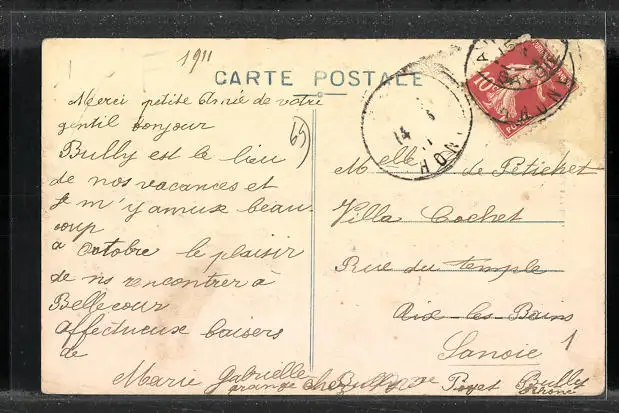 1911
CARTE POSTALE
Merci petite Aimée de votre
gentil bonjour
Bully est le lieu
de nos vacances et
je m'y amuse beau-
coup
a octobre le plaisir
de ns rencontrer à
Bellecour
affectueux baisers
de
Marie Gabrielle
69
Melle de Pétichet
Villa Cochet
Rue du temple
Aix-les-Bains
Savoie
1
grange chez Mme Poyet Bully
Rhône
10c
POSTES
14
RHONE